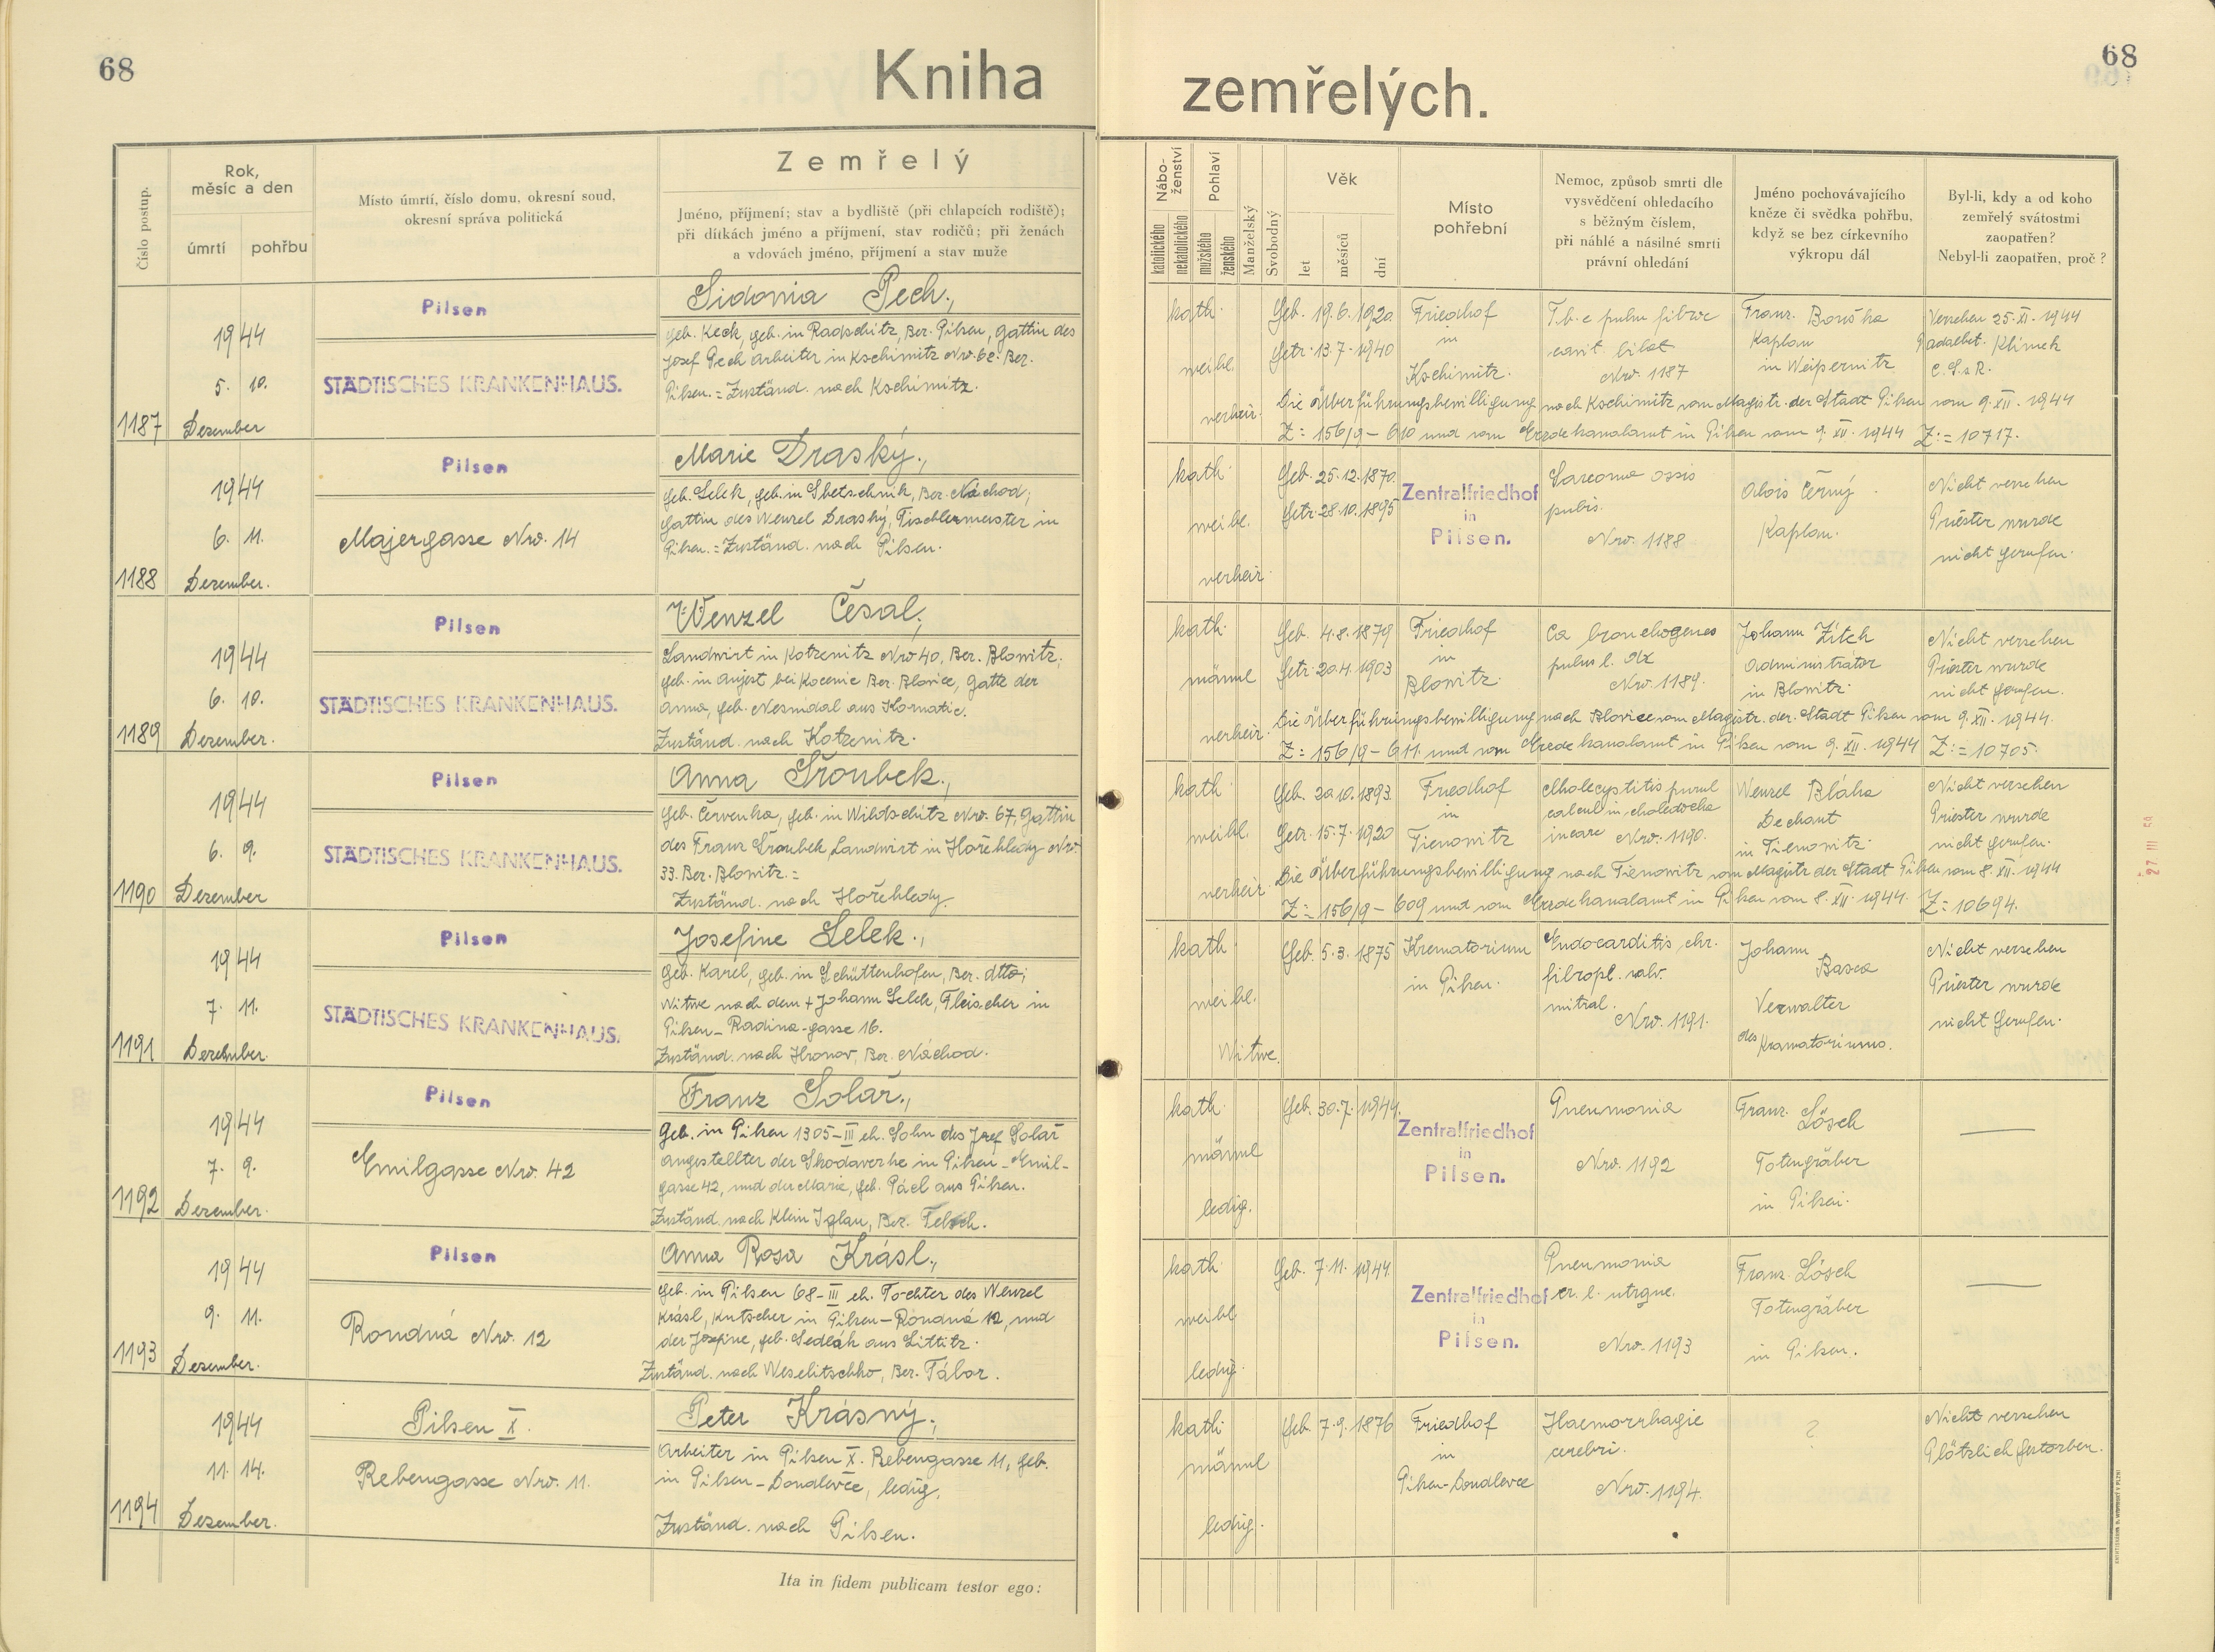 68
Kniha
zemřelých.
68
Číslo postup.
Rok,
měsíc a den
úmrtí
pohřbu
Místo úmrtí, číslo domu, okresní soud,
okresní správa politická
Zemřelý
Jméno, příjmení; stav a bydliště (při chlapcích rodiště);
při dítkách jméno a příjmení, stav rodičů; při ženách
a vdovách jméno, příjmení a stav muže
Nábo-
ženství
katolického
nekatolického
Pohlaví
mužského
ženského
Manželský
Svobodný
Věk
let
měsíců
dní
Místo
pohřební
Nemoc, způsob smrti dle
vysvědčení ohledacího
s běžným číslem,
při náhlé a násilné smrti
právní ohledání
Jméno pochovávajícího
kněze či svědka pohřbu,
když se bez církevního
výkropu dál
Byl-li, kdy a od koho
zemřelý svátostmi
zaopatřen?
Nebyl-li zaopatřen, proč?
1187
1944
5. 10.
Dezember
Pilsen
STÄDTISCHES KRANKENHAUS.
Sidonia Pech.,
geb. Keck, geb. in Radschitz, Ber. Pilsen, Gattin des
Josef Pech Arbeiter in Kschimitz Nro. 62. Ber.
Pilsen. = Zuständ. nach Kschimitz.
kath.
weibl.
verheir.
Geb. 19.6.1920
Getr. 13.7.1940
Friedhof
in
Kschimitz.
T.b.c pulm fibroc
cavit. bilat
Nro. 1187
Franz. Bouška
Kaplan
in Weipernitz
Versehen 25. XI. 1944
Padalbet. Klimek
C.S.s R.
Die Überführungsbewilligung nach Kschimitz vom Magistr. der Stadt Pilsen vom 9. XII. 1944
Z: = 156/9 - 610 und vom Erzdekanalamt in Pilsen vom 9. XII. 1944 Z: = 10717.
1188
1944
6. 11.
Dezember.
Pilsen
Majergasse Nro. 14
Marie Draský.,
geb. Selek, geb. in Sbetschnik, Ber. Náchod;
Gattin des Wenzel Draský, Tischlermeister in
Pilsen. = Zuständ. nach Pilsen.
kath.
weibl.
verheir.
Geb. 25.12.1870.
Getr. 28.10.1895
Zentralfriedhof
in
Pilsen.
Sarcoma ossis
pubis.
Nro. 1188
Alois Černý
Kaplan.
Nicht versehen
Priester wurde
nicht gerufen.
1189
1944
6. 10.
Dezember.
Pilsen
STÄDTISCHES KRANKENHAUS.
Wenzel Česal.,
Landwirt in Kotzenitz Nro 40, Ber. Blowitz;
geb. in Aujest bei Kocenic Ber. Blovice, Gatte der
Anna, geb. Nesmdal aus Kornatic.
Zuständ. nach Kotzenitz.
kath.
männl
verheir.
Geb. 4.8.1879
Getr. 20.4.1903
Friedhof
in
Blowitz.
Ca bronchogenes
pulm l. dx
Nro. 1189.
Johann Zítek
Administrátor
in Blowitz.
Nicht versehen
Priester wurde
nicht gerufen.
Die Überführungsbewilligung nach Blovice vom Magistr. der Stadt Pilsen vom 9. XII. 1944.
Z: = 156/9 - 611. und vom Erzdekanalamt in Pilsen vom 9. XII. 1944 Z: = 10705.
1190
1944
6. 9.
Dezember
Pilsen
STÄDTISCHES KRANKENHAUS.
Anna Šroubek.,
geb. Červenka, geb. in Wildschitz Nro. 67, Gattin
des Franz Šroubek, Landwirt in Hořehledy Nro.
33. Ber. Blowitz. =
Zuständ. nach Hořehledy.
kath.
weibl.
verheir.
Geb. 20.10.1893.
Getr. 15.7.1920
Friedhof
in
Tienowitz
Cholecystitis purul
calcul in choledocha
incarc Nro. 1190.
Wenzel Bláha
Dechant
in Tienowitz.
Nicht versehen
Priester wurde
nicht gerufen.
Die Überführungsbewilligung nach Tienowitz vom Magistr der Stadt Pilsen vom 8. XII. 1944
Z: = 156/9 - 609 und vom Erzdekanalamt in Pilsen vom 8. XII. 1944. Z: = 10694.
1191
1944
7. 11.
Dezember.
Pilsen
STÄDTISCHES KRANKENHAUS.
Josefine Selek.,
geb. Karel, geb. in Schüttenhofen, Ber. dtto;
Witwe nach dem + Johann Selek, Fleischer in
Pilsen - Radina-gasse 16.
Zuständ. nach Hronov, Ber. Náchod.
kath
weibl.
Witwe.
Geb. 5.3.1875
Krematorium
in Pilsen.
Endocarditis chr.
fibropl. valv.
mitral.
Nro. 1191.
Johann
Basca
Verwalter
des Kramatoriums.
Nicht versehen
Priester wurde
nicht gerufen.
1192
1944
7. 9.
Dezember.
Pilsen
Emilgasse Nro. 42
Franz Solař.,
Geb. in Pilsen 1305-III eh. Sohn des Josef Solař
Angestellter der Skodawerke in Pilsen - Emil-
gasse 42, und der Marie, geb. Pácl aus Pilsen.
Zuständ. nach Klein Iglau, Ber. Teltsch.
kath.
männl
ledig.
Geb. 30.7.1944.
Zentralfriedhof
in
Pilsen.
Pneumonia
Nro. 1192
Franz. Lösch
Totengräber
in Pilsen.
1193
1944
9. 11.
Dezember.
Pilsen
Rondná Nro. 12
Anna Rosa Krásl.,
geb. in Pilsen 68-III eh. Tochter des Wenzel
Krásl, Kutscher in Pilsen - Rondná 12, und
der Josefine, geb. Sedlák aus Littitz.
Zuständ. nach Weselitschko, Ber. Tábor.
kath.
weibl
ledig.
Geb. 7.11.1944.
Zentralfriedhof
in
Pilsen.
Pneumonia
cr. l. utrque.
Nro. 1193
Franz. Lösch
Totengräber
in Pilsen.
1194
1944
11. 14.
Dezember.
Pilsen X.
Rebengasse Nro. 11.
Peter Krásný.,
Arbeiter in Pilsen X. Rebengasse 11, geb.
in Pilsen - Doudlevce, ledig.
Zuständ. nach Pilsen.
kath.
männl
ledig.
Geb. 7.9.1876
Friedhof
in
Pilsen-Doudlevce
Haemorrhagie
cerebri.
Nro. 1194.
?
Nicht versehen
Plötzlich gestorben.
Ita in fidem publicam testor ego:
27 III 59